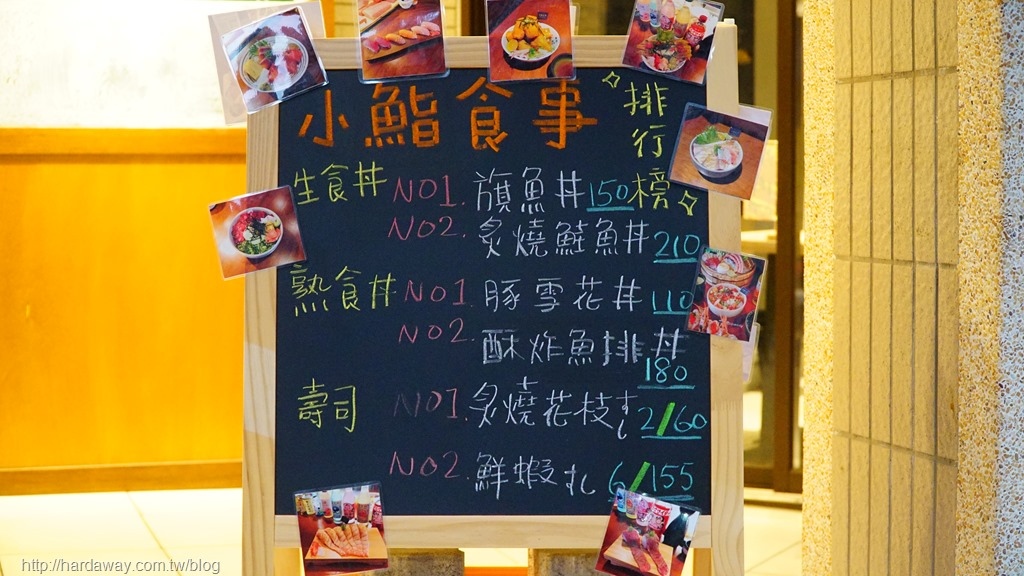 小鮨食事
排行榜
生食丼 NO1. 旗魚丼 150
NO2. 炙燒鮭魚丼 210
熟食丼 NO1 豚雪花丼 110
NO2 酥炸魚排丼
180
壽司 NO1. 炙燒花枝すし 2/60
NO2 鮮蝦丸 6/155
http://hardaway.com.tw/blog